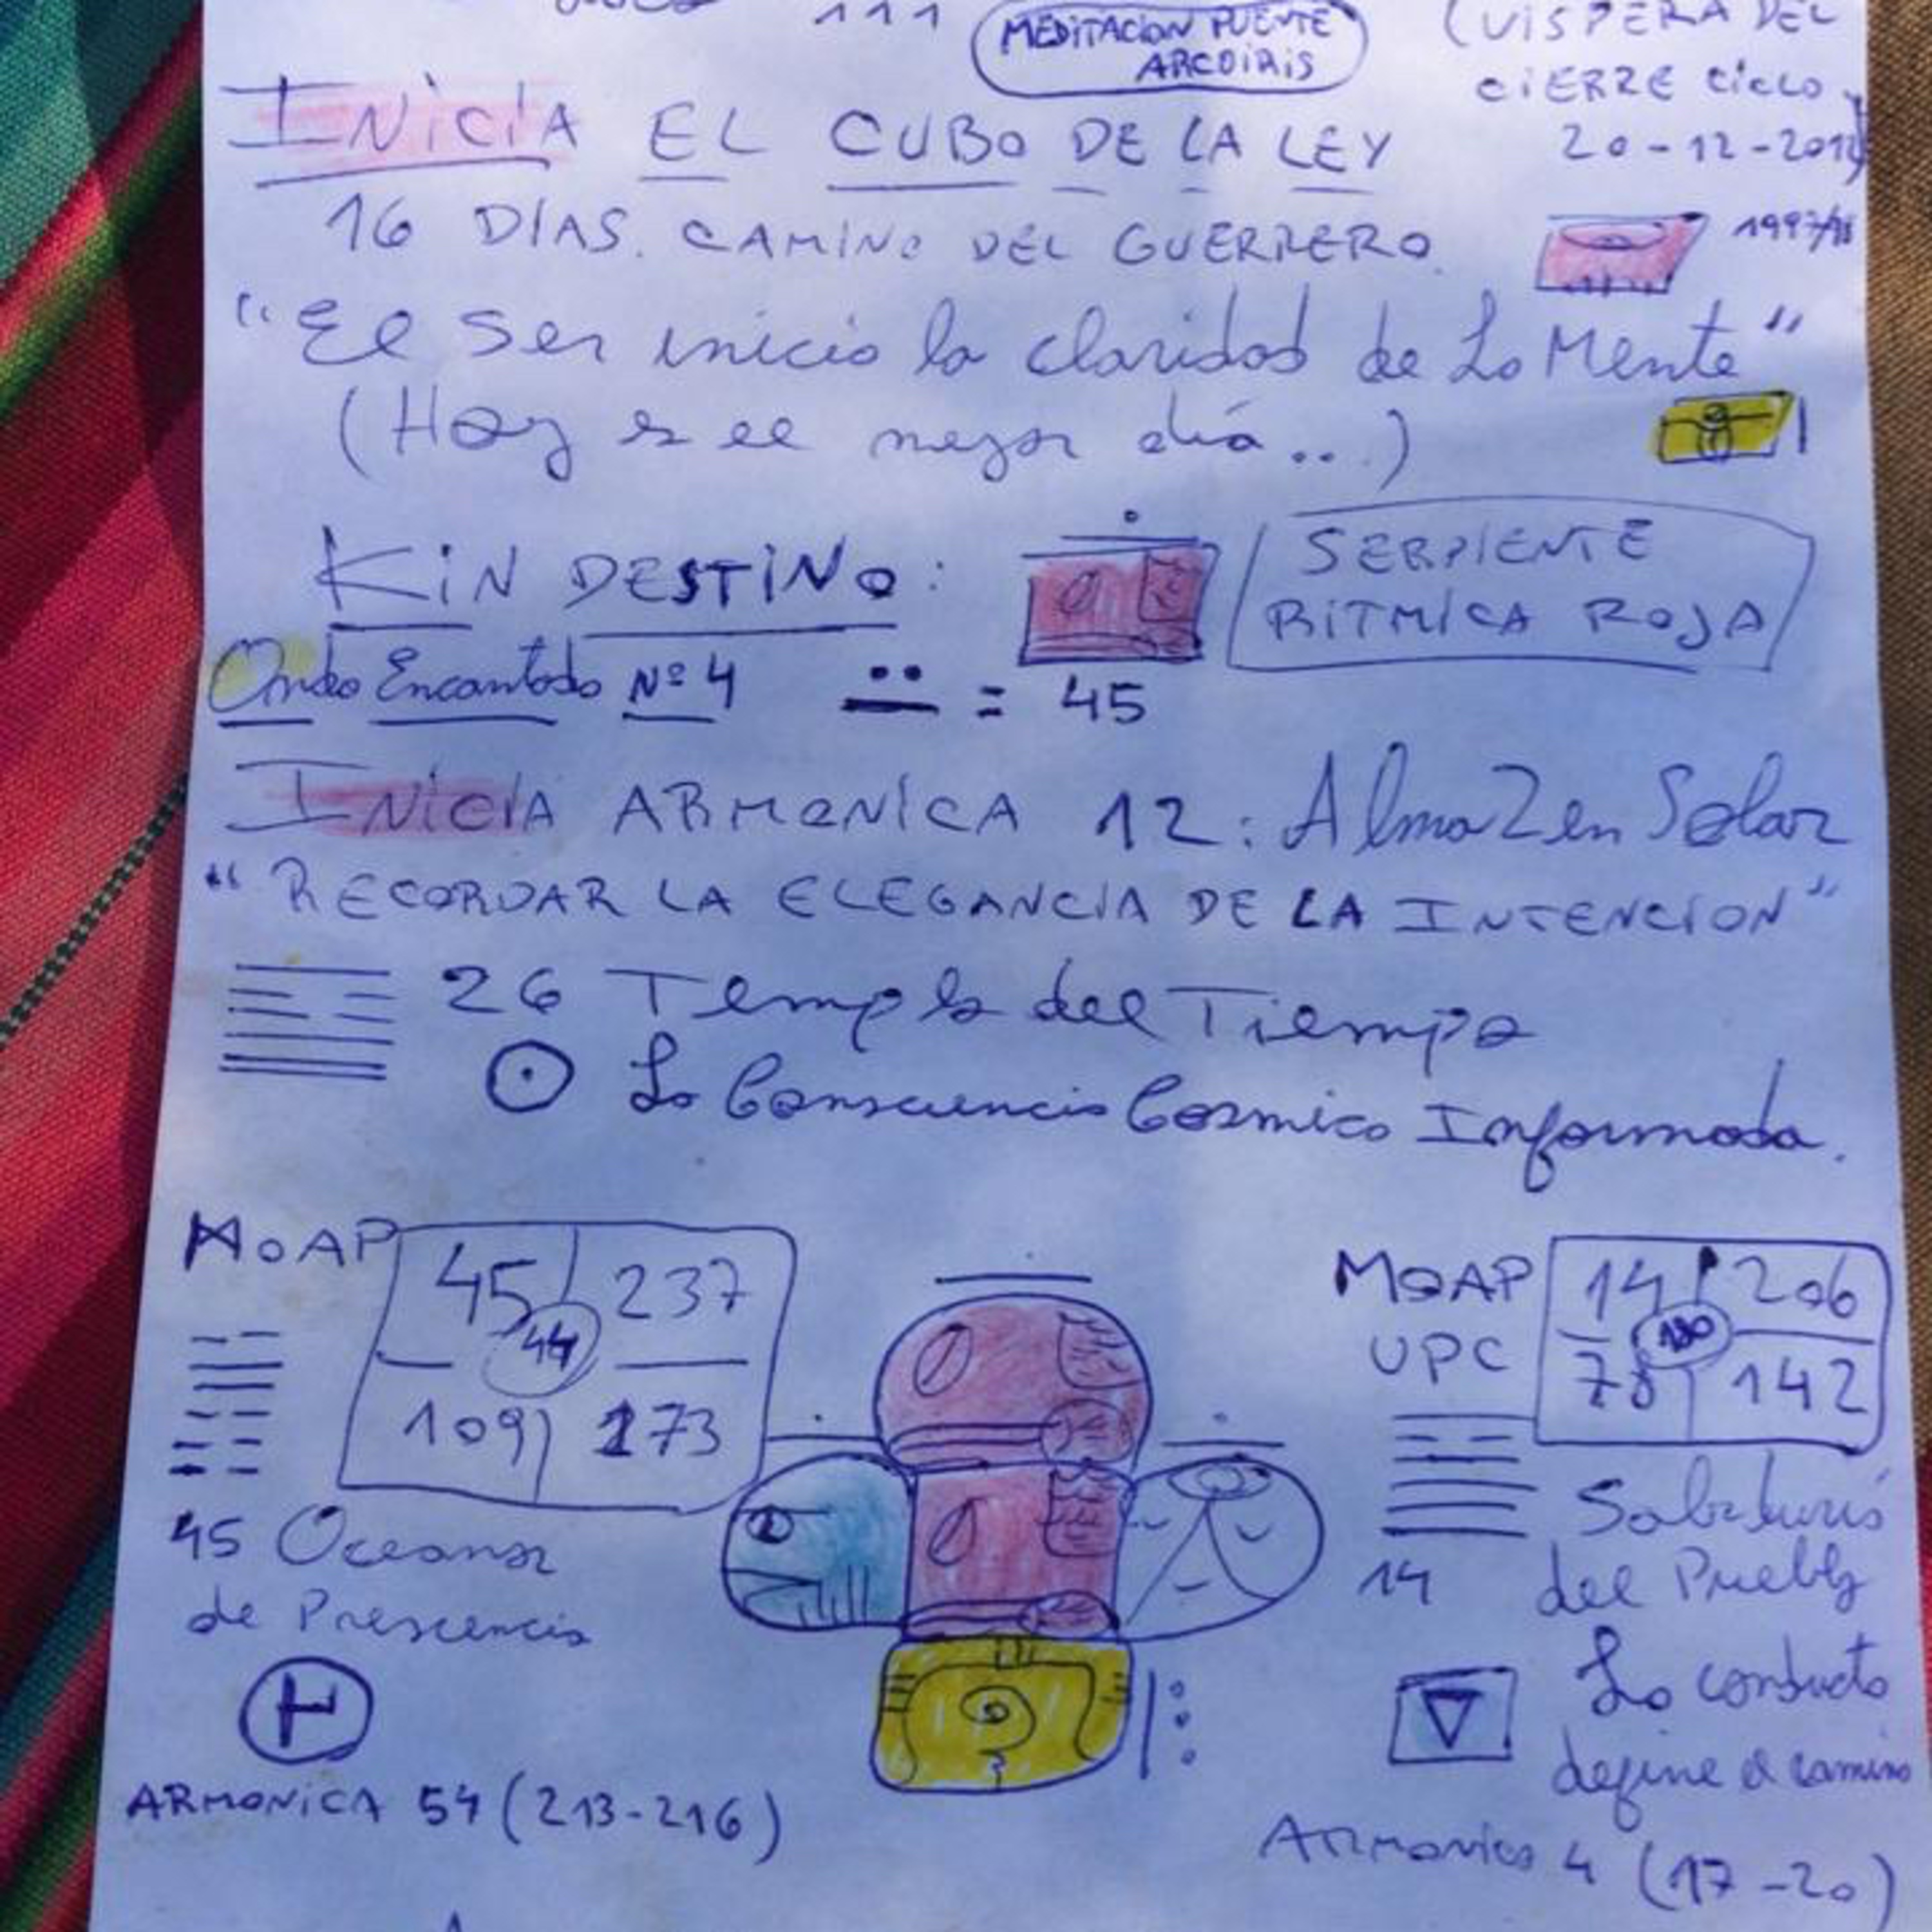 111
MEDITACION PUENTE
ARCOIRIS
(VISPERA DEL
CIERRE CICLO
20-12-2012)
INICIA EL CUBO DE LA LEY
16 DIAS. CAMINO DEL GUERRERO.
1997/98
"El Ser inicia la claridad de La Mente"
(Hoy es el mejor día...)
KIN DESTINO:
SERPIENTE
RITMICA ROJA
Onda Encantada Nº 4
= 45
INICIA ARMONICA 12: AlmaZen Solar
"RECORDAR LA ELEGANCIA DE LA INTENCION"
26 Templo del Tiempo
La Consciencia Cosmica Informada.
MOAP
45 237
44
109 173
45 Oceanor
de Presciencia
ARMONICA 54 (213-216)
MOAP
UPC
14 206
78 142
14
Sabiduria
del Pueblo
La conducta
define el camino
Armonica 4 (17-20)